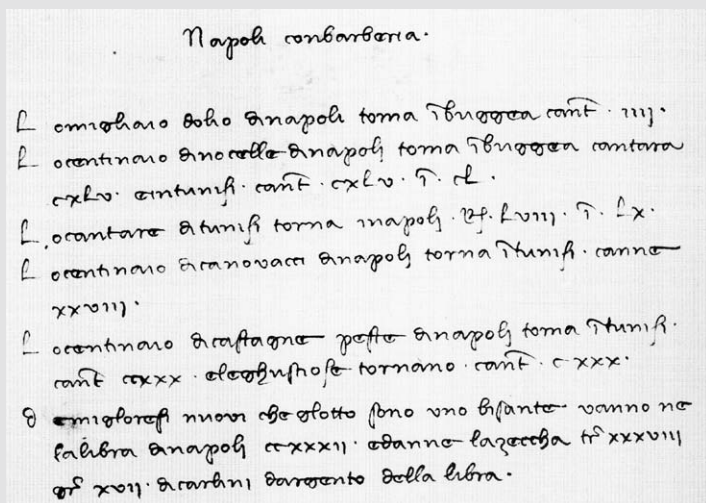 Napoli conbarberia.
L omigliaio dolio dinapoli torna ībuggea cant̄ . iiij.
L ocentinaio dinocelle dinapolj torna ībuggea cantara
cxlv . eintunisi . cant̄ . cxlv . ī . cl .
L ocantare ditunisi torna inapolj . Lviii . ī . Lx .
L ocentinaio dicanovacci dinapolj torna ītunisi . canne
xxviij .
L ocentinaio dicastagne peste dinapolj torna ītunisi .
cant̄ ccxxx . tornano . cant̄ . cxxx .
D emigloresi nuovi che glotto sono uno bisante vanno ne
lalibra dinapolj ccxxxij . edanne lazeccha tr̄ xxxviii
gr̄ xvij . dicarlini dargento della libra .